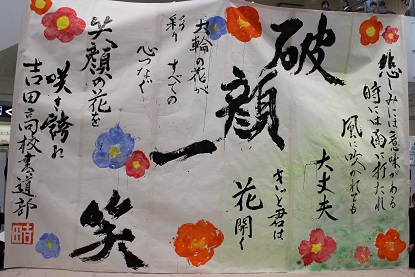 悲しみには意味がある
時には雨に打たれ
風に吹かれても
大丈夫
きっと君は
花開く
破顔一笑
大輪の花が
彩り すべての
心つなぐ
笑顔の花を
咲き誇れ
吉田高校書道部
吉田